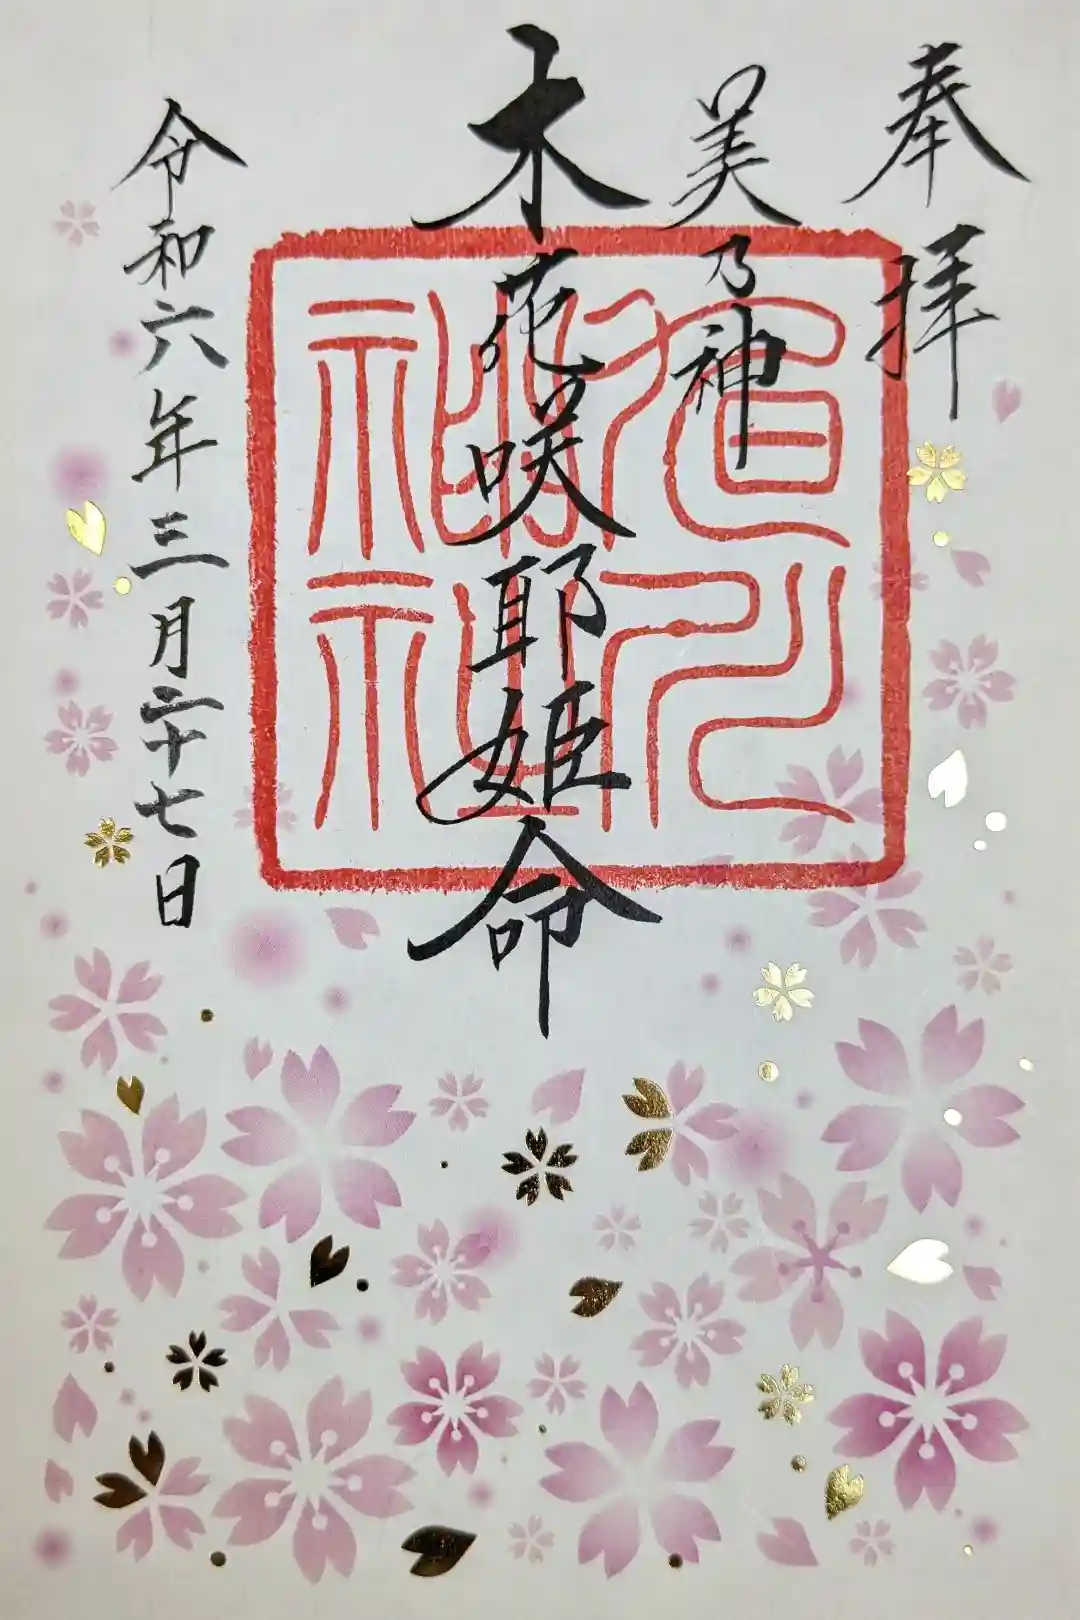 奉拝
美乃神
木花咲耶姫命
令和六年三月二十七日